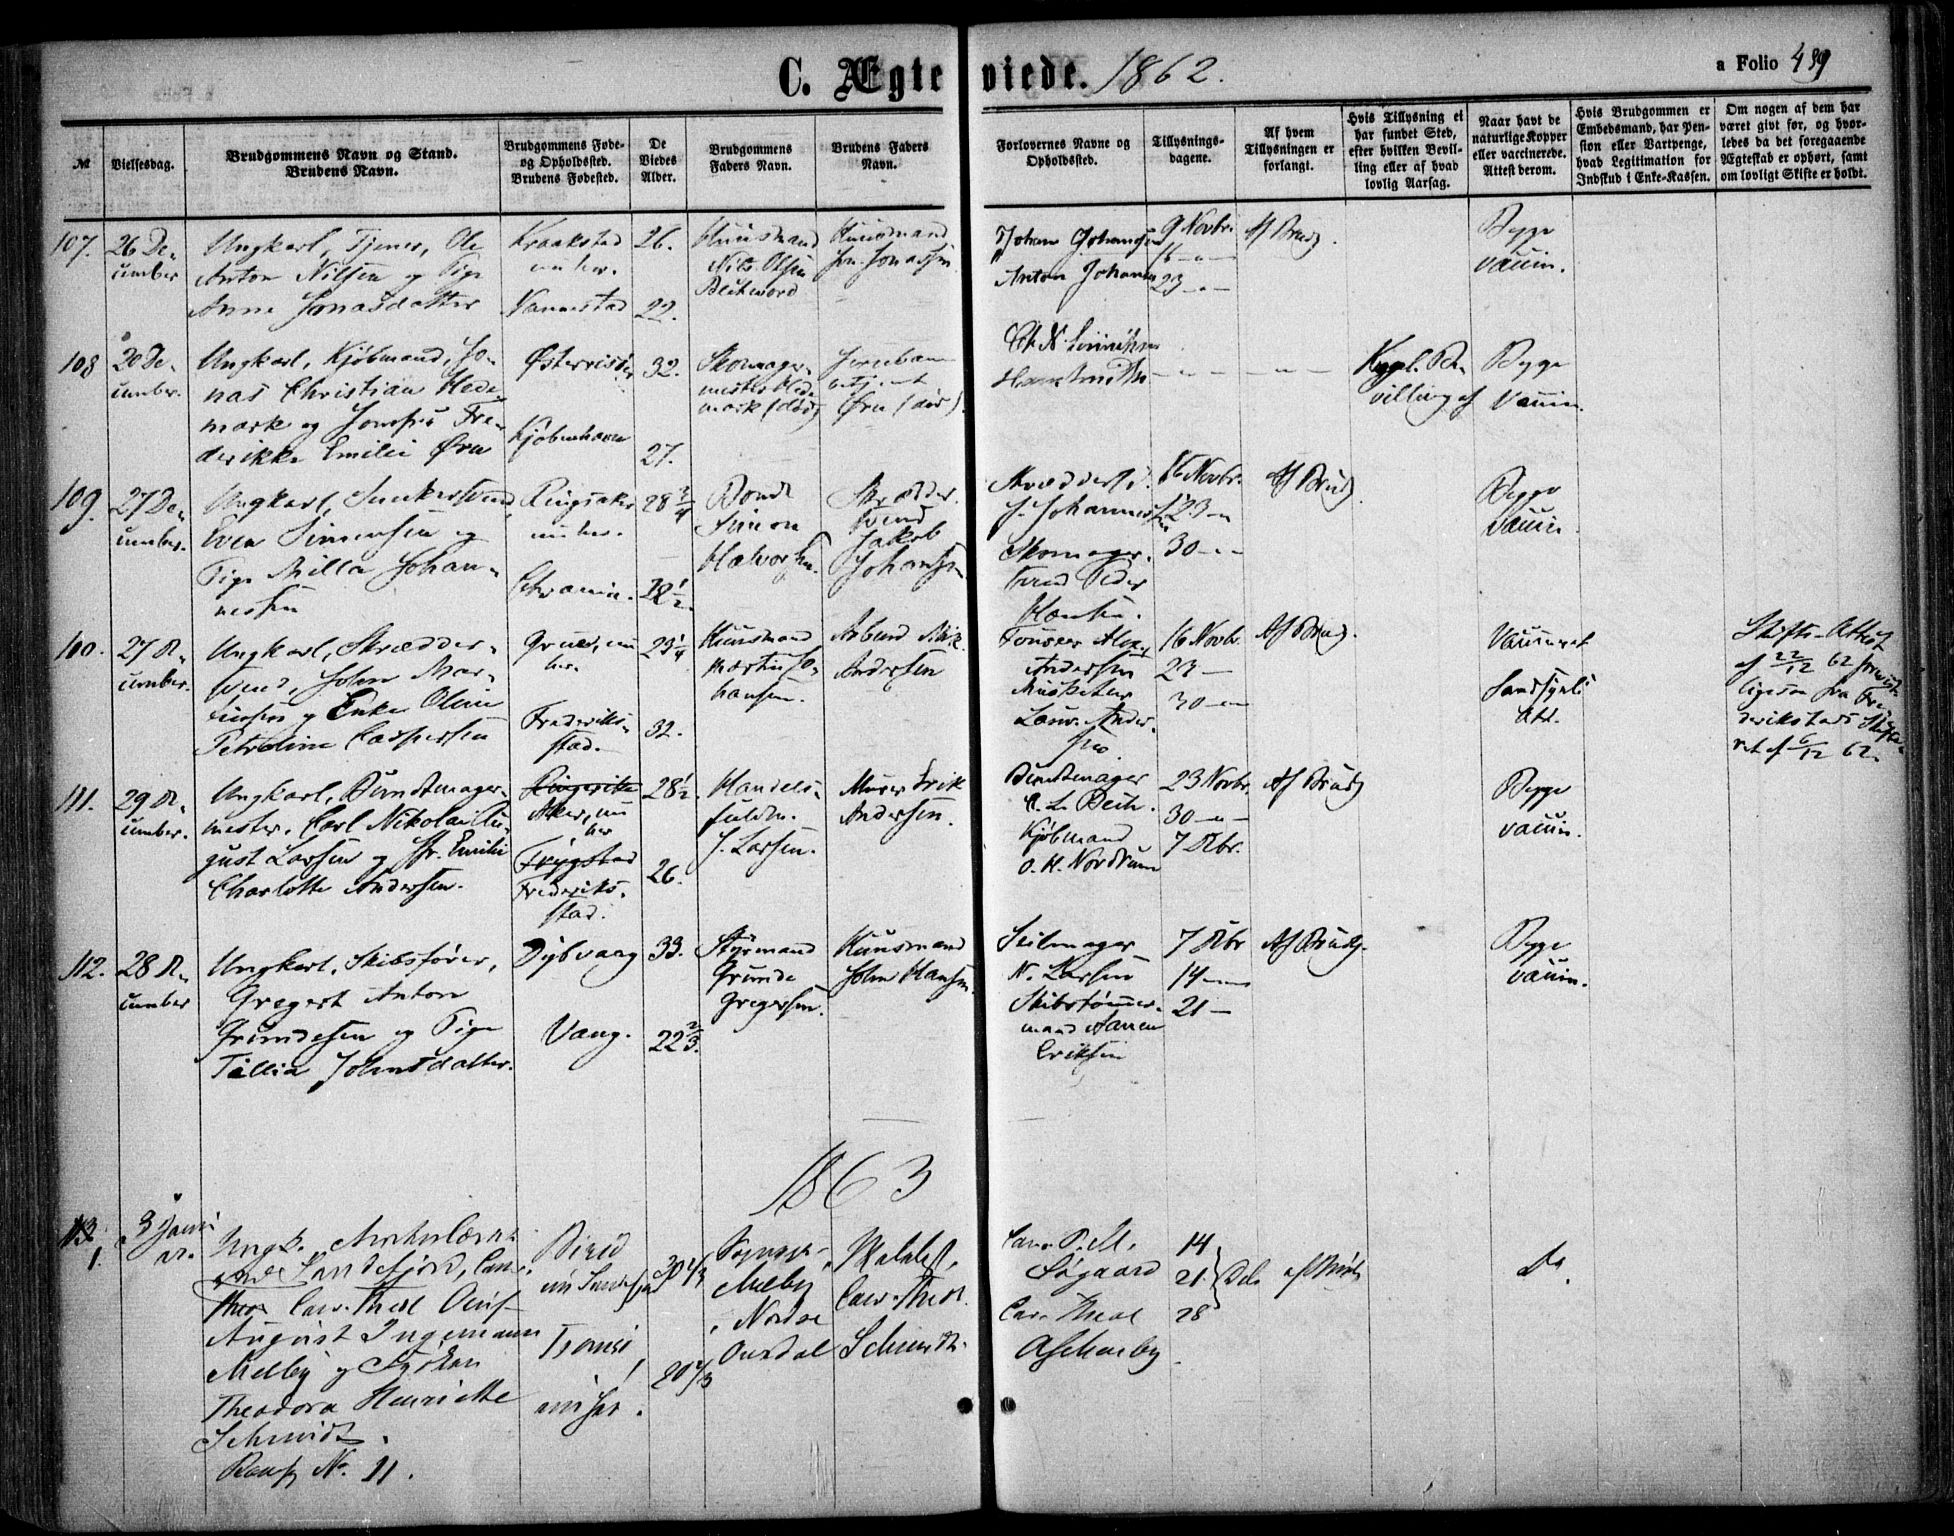 C. Ægteviede. 1862.
a Folio 439
№
Vielsesdag.
Brudgommens Navn og Stand.
Brudens Navn.
Brudgommens Føde-
og Opholdssted.
Brudens Fødested.
De
Viedes
Alder.
Brudgommens
Faders Navn.
Brudens Faders
Navn.
Forlovernes Navne og
Opholdssted.
Tillysnings-
dagene.
Af hvem
Tillysningen er
forlangt.
Hvis Tillysning ei
har fundet Sted,
efter hvilken Bevil-
ling eller af hvad
lovlig Aarsag.
Naar havt de
naturlige Kopper
eller vaccinerede.
Attest derom.
Hvis Brudgommen er
Embedsmand, har Pen-
sion eller Vartpenge,
hvad Legitimation for
Indskud i Enke-Kassen.
Om nogen af dem har
været gift før, og hvor-
ledes da det foregaaende
Ægteskab er ophørt, samt
om lovligt Skifte er holdt.
107.
26 De-
cember
Ungkarl, Tjener, Ole
Anton Nilsen og Pige
Anne Jonasdatter
Kraakstad
nu her.
Nannestad
26.
22.
Huusmand
Nils Olsen
Huusmand
Jon Jonassen
Johan Johansen
Anton Johansen
9 Novbr.
16 - -
23 - -
Af Brudg.
Begge
vaccin.
108
20 De-
cember.
Ungkarl, Kjøbmand, Jo-
nas Christian Hede-
mark og Fre-
derikke Emilie Ørn
Østerrisøer
Kjøbenhavn
32.
27.
Skomager-
mester Hede-
mark (død)
Ørn (død).
Kgl. Be-
villing af
Begge
Vaccin.
109.
27 De-
cember.
Ungkarl, Snedkersvend
Even Simensen og
Pige Milla Johan-
nesen
Ringsaker
nu her.
Christiania.
28 3/4
28 1/2.
Bonde
Simon
Halvorsen.
Skrædder-
svend
Jakob
Johansen
J. Johannesen
Skomager-
svend Peder
Hansen.
16 Novbr.
23 -
30 - -
Af Brudg.
Begge
vaccin.
110.
27 De-
cember.
Ungkarl, Skrædder-
svend, John Mar-
tinsen og Enke Oline
Petroline Caspersen
Grue, nu
her.
Frederiks-
stad.
29 1/4
32.
Huusmand
Martin Jo-
hansen.
Arbmd Nik.
Andersen
Andersen
Musketer
16 Novbr.
23 -
30 - -
Af Brudg.
Vaccineret
Skifte-Attest
af 22/12 62
ligesaa fra Fre-
derikstads Skifte-
ret af 6/12 62
111.
29 De-
cember.
Ungkarl, Bundtmager-
mester, Carl Nikolai Au-
gust Larsen og Jfr. Emilie
Charlotte Andersen.
Ringerike
Aker, nu
her
Trygstad
Frederiks-
stad.
28 1/2.
26.
Handels-
fuldm.
J. Larsen.
Murer Erik
Andersen.
Bundtmager
Kjøbmand
O. H. Nordrum
23 Novbr.
30 - -
7 Dbr.
Af Brudg
Begge
vaccin.
112.
28 De-
cember
Ungkarl, Skibsfører,
Gregert Anton
Grundesen og Pige
Tillia Johnsdatter.
Dybvaag
Vang.
33.
22 2/3.
Styrmand
Grunde
Gregersen.
Huusmand
John Hansen.
Seilmager
N. Larsen
Skibstømmer-
mand
Eriksen
7 Dbr
14 - -
21 -
Af Brudg.
Begge
vaccin.
1863
113
1.
3 Janu-
ar.
Sandefjord, Can.
Theol
August Ingemann
Melby og Frøken
Theodora Henriette
Schmidt.
No. 11.
Birid
nu Sandefjord
Tromsø
nu her.
30 4/3
20 4/3
Sognepr.
Melby,
Nordre
Ourdal
Cand. Theol.
Schmidt.
Søgaard
Can. Theol
14
21
28